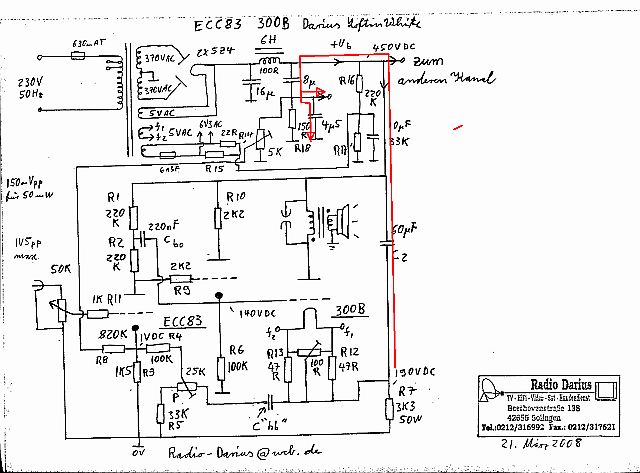 ECC83 300B Darius Loftin White
630mAT
230V
50Hz
370VAC
370VAC
2X5Z4
6H
100R
+Ub
450VDC
zum
anderen Kanal
16µ
8µ
R16
220
K
5VAC
f1
f2
5VAC
6V3AC
22R
R14
5K
R15
R18
4µ5
33K
150mVpp
für 50mW
1V5pp
max
50K
R1
220
K
R2
220
K
220nF
Cbo
R10
2K2
2K2
R9
1K R11
50µF
ECC83
140VDC
300B
f2
f1
820K
R8
1VDC
R4
100K
1K5
R3
25K
P
33K
R5
R6
100K
R13
47
R
100
R
R12
47R
C"bb"
190VDC
R7
3K3
50W
0V
Radio-Darius@web.de
Radio Darius
TV-HiFi-Video-Sat-Kundendienst
Beethovenstraße 138
42655 Solingen
Tel.:0212/316992 Fax.: 0212/317621
21. März 2008